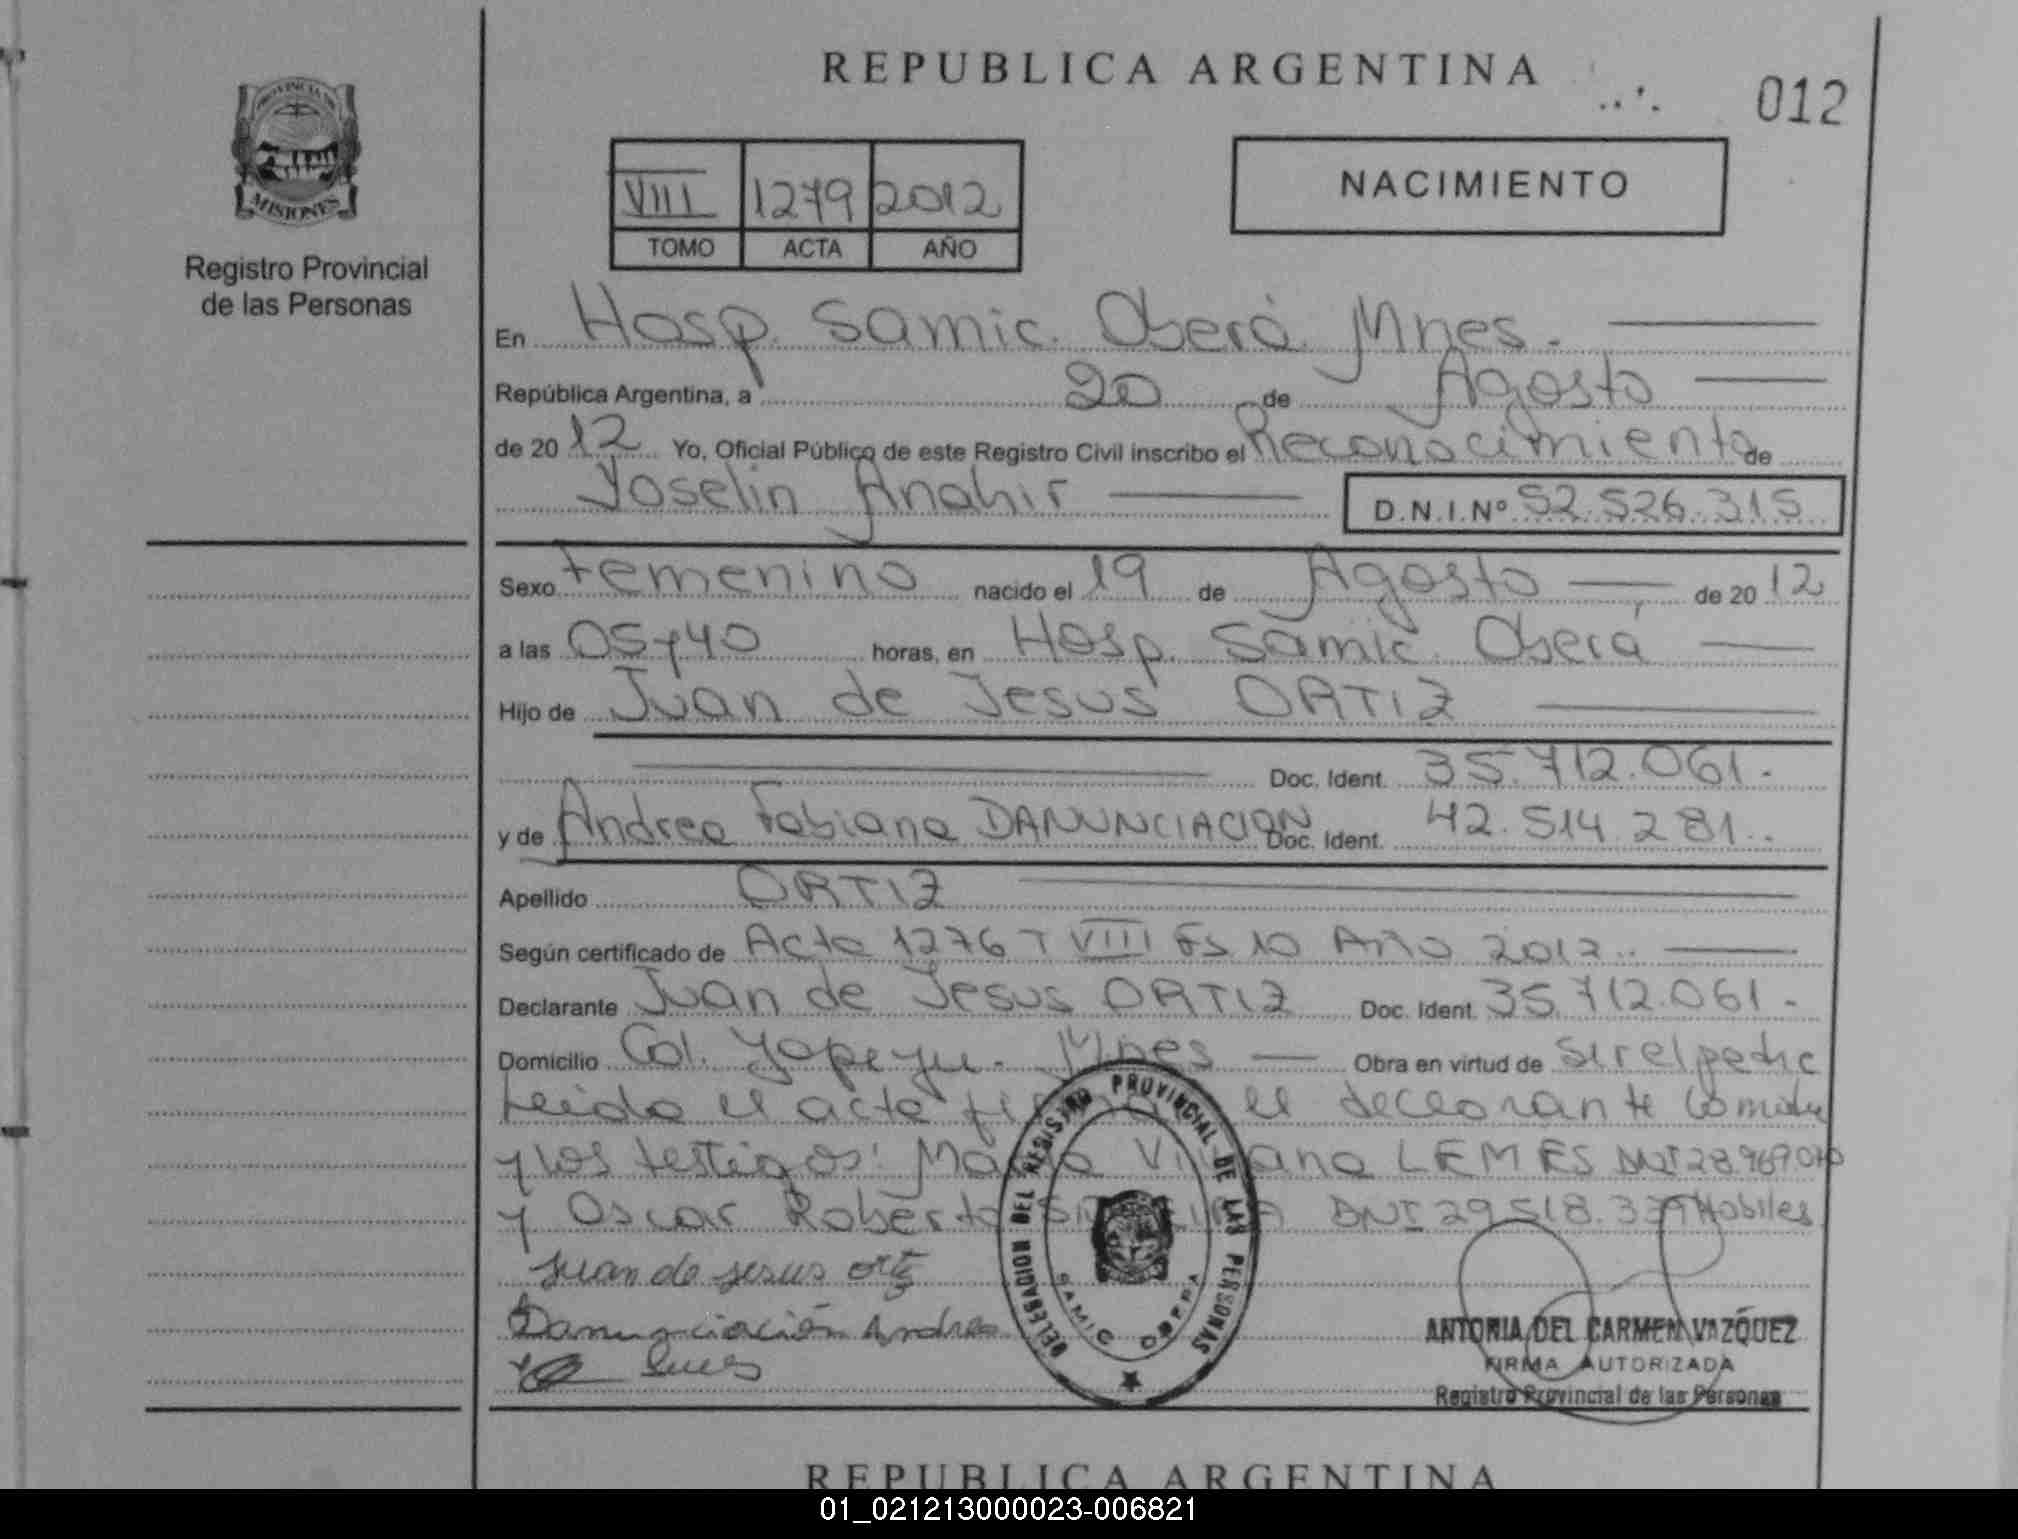 REPUBLICA ARGENTINA
012
PROVINCIA DE
MISIONES
Registro Provincial
de las Personas
VIII 1279 2012
TOMO ACTA AÑO
NACIMIENTO
En Hosp. Samic. Oberá. Mnes.
República Argentina, a 20 de Agosto
de 20 12 Yo, Oficial Público de este Registro Civil inscribo el Reconocimiento de
Yoselin Anahir D.N.I.Nº 52.526.315
Sexo Femenino nacido el 19 de Agosto de 20 12
a las 05y40 horas, en Hosp. Samic. Oberá
Hijo de Juan de Jesus ORTIZ
Doc. Ident. 35.712.061.
y de Andrea Fabiana DANUNCIACION Doc. Ident. 42.514.281.
Apellido ORTIZ
Según certificado de Acta 1276 T VIII Fs 10 Año 2012.
Declarante Juan de Jesus ORTIZ Doc. Ident. 35.712.061.
Domicilio Col. Yapeyu. Mnes Obra en virtud de
Leida el acta el declarante
y los testigos: Maria Viviana LEMES DNI 28.969.070
y Oscar Roberto DNI 29.518.339 Habiles
Juan de Jesus ortiz
Danunciación Andrea
DELEGACION DEL REGISTRO PROVINCIAL DE LAS PERSONAS
SAMIC OBERA
ANTONIA DEL CARMEN VAZQUEZ
FIRMA AUTORIZADA
Registro Provincial de las Personas
REPUBLICA ARGENTINA
01_021213000023-006821